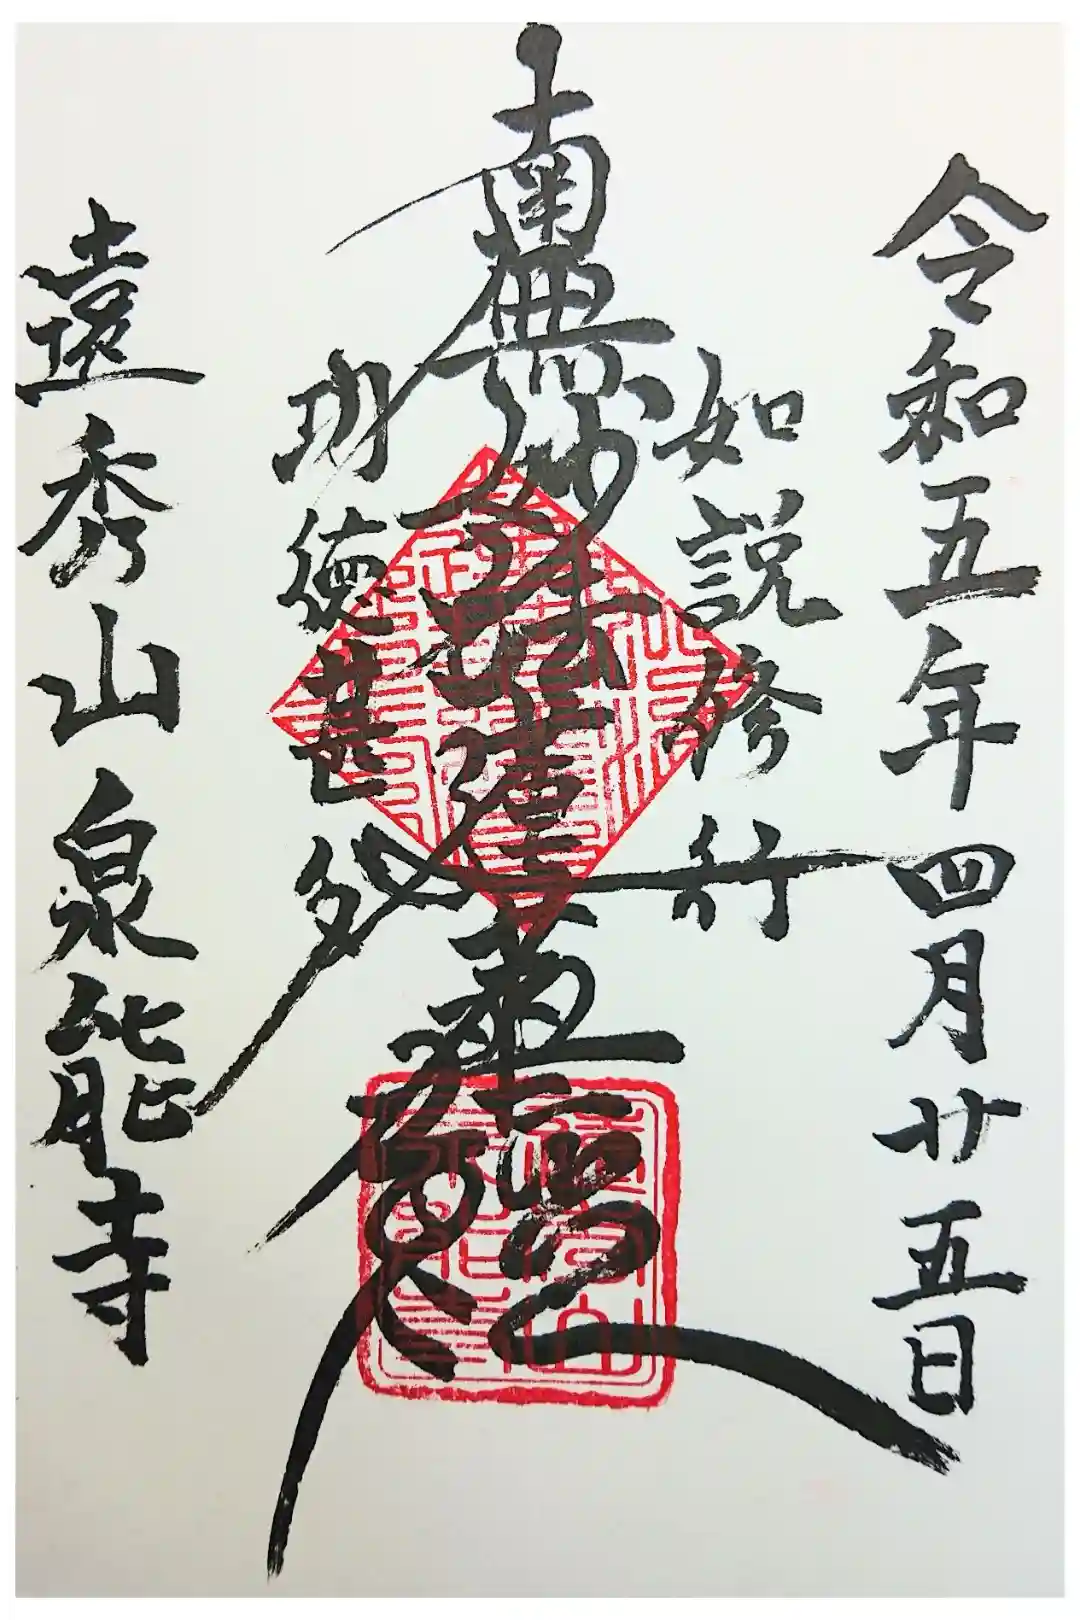 令和五年四月廿五日
如説修行
南無妙法蓮華經
功徳甚多
遠秀山泉能寺